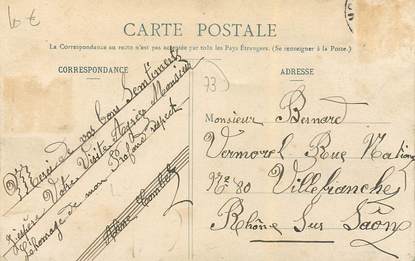 10 €
CARTE POSTALE
La Correspondance au recto n'est pas acceptée par tous les Pays Étrangers. (Se renseigner à la Poste.)
CORRESPONDANCE
ADRESSE
73
Merci de vos bons Sentiments
Votre Visite Agréez Monsieur
l'homage de mon Profond respect
Monsieur Bernard
Vermorel Rue Nation
No 80 Villefranche
Rhône Sur Saône